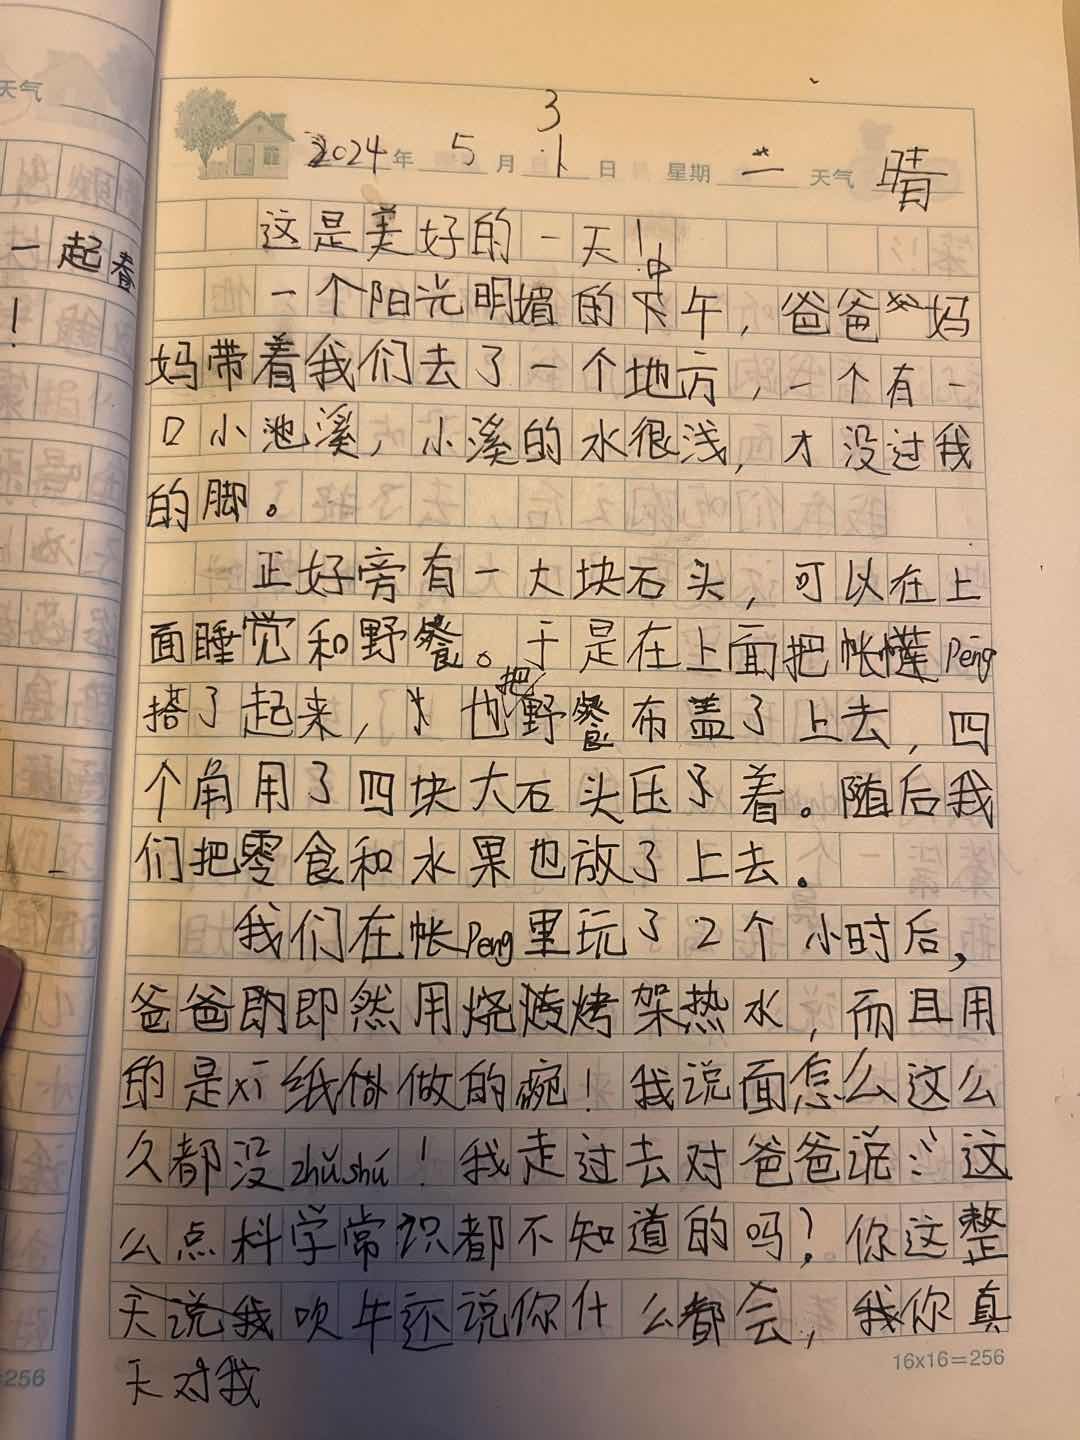 天气
一起春
！
2024年 5月 3 1日 星期 二 天气 晴
这是美好的一天！
一个阳光明媚的下中午，爸爸妈
妈带着我们去了一个地方，一个有一
口小池溪，小溪的水很浅，才没过我
的脚。
正好旁有一大块石头，可以在上
面睡觉和野餐。于是在上面把帐篷Péng
搭了起来，也把野餐布盖了上去，四
个角用了四块大石头压了着。随后我
们把零食和水果也放了上去。
我们在帐Peng里玩了2个小时后，
爸爸即即然用烧烤烤架热水，而且用
的是xī纸做做的碗！我说面怎么这么
久都没zhǔshú！我走过去对爸爸说：这
么点科学常识都不知道的吗？你这整
天说我吹牛还说你什么都会，我你真
天对我
16x16=256
=256